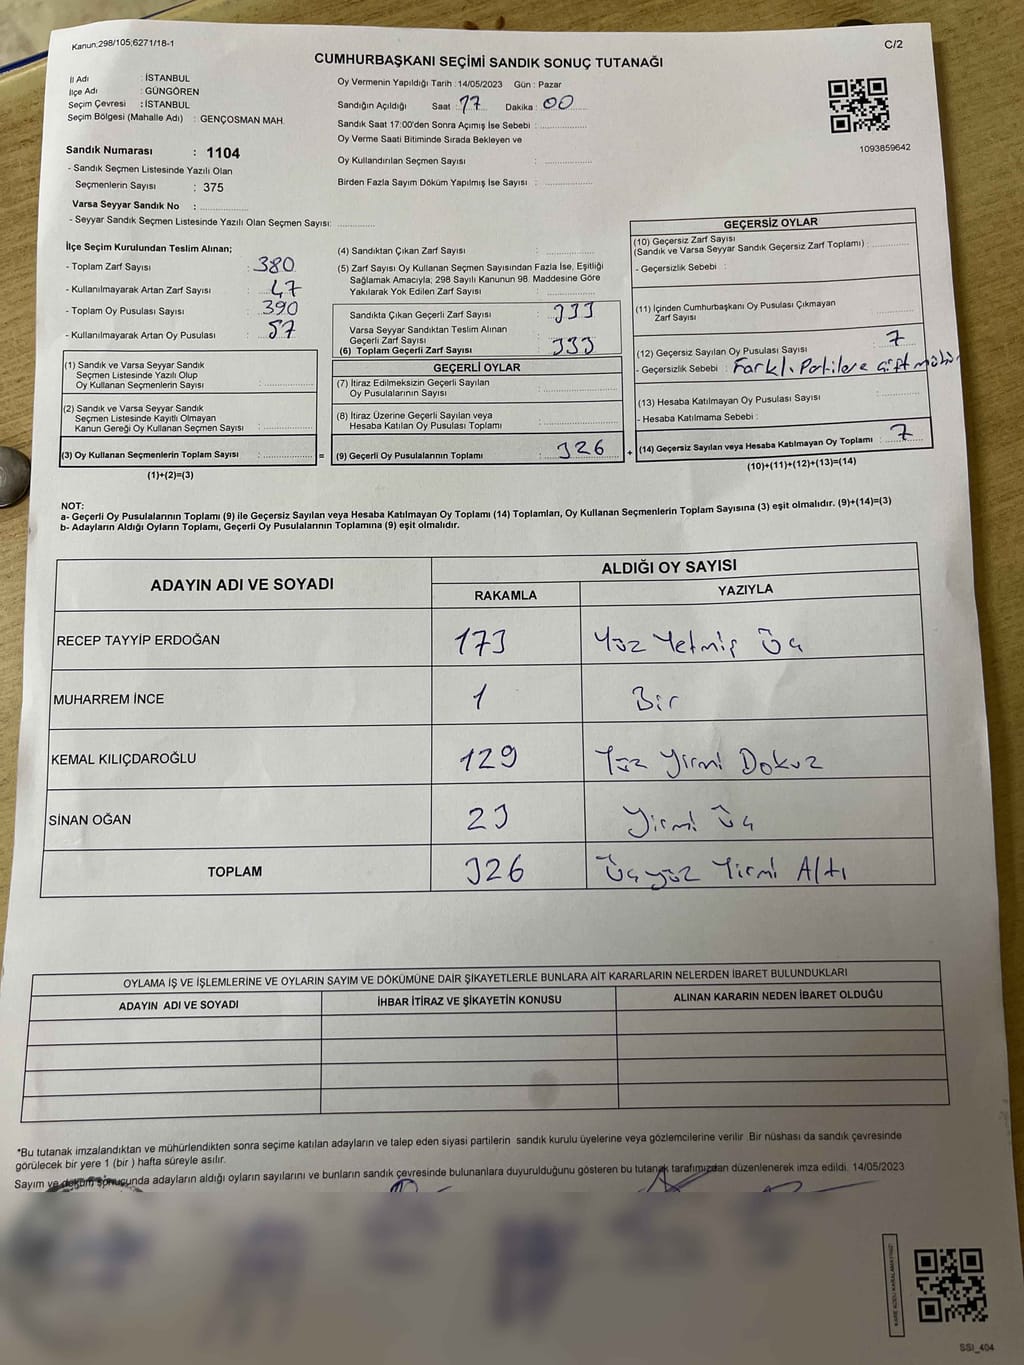 Kanun.298/105;6271/18-1
C/2
CUMHURBAŞKANI SEÇİMİ SANDIK SONUÇ TUTANAĞI
İl Adı : İSTANBUL
İlçe Adı : GÜNGÖREN
Seçim Çevresi : İSTANBUL
Seçim Bölgesi (Mahalle Adı) : GENÇOSMAN MAH.
Oy Vermenin Yapıldığı Tarih : 14/05/2023 Gün : Pazar
Sandığın Açıldığı Saat : 17 Dakika : 00
Sandık Saat 17:00'den Sonra Açımış İse Sebebi :
Oy Verme Saati Bitiminde Sırada Bekleyen ve
Oy Kullandırılan Seçmen Sayısı :
Birden Fazla Sayım Döküm Yapılmış İse Sayısı :
1093859642
Sandık Numarası : 1104
- Sandık Seçmen Listesinde Yazılı Olan
Seçmenlerin Sayısı : 375
Varsa Seyyar Sandık No :
- Seyyar Sandık Seçmen Listesinde Yazılı Olan Seçmen Sayısı:
İlçe Seçim Kurulundan Teslim Alınan;
- Toplam Zarf Sayısı : 380
- Kullanılmayarak Artan Zarf Sayısı : 47
- Toplam Oy Pusulası Sayısı : 390
- Kullanılmayarak Artan Oy Pusulası : 57
(1) Sandık ve Varsa Seyyar Sandık
Seçmen Listesinde Yazılı Olup
Oy Kullanan Seçmenlerin Sayısı :
(2) Sandık ve Varsa Seyyar Sandık
Seçmen Listesinde Kayıtlı Olmayan
Kanun Gereği Oy Kullanan Seçmen Sayısı :
(3) Oy Kullanan Seçmenlerin Toplam Sayısı : =
(1)+(2)=(3)
(4) Sandıktan Çıkan Zarf Sayısı :
(5) Zarf Sayısı Oy Kullanan Seçmen Sayısından Fazla İse, Eşitliği
Sağlamak Amacıyla; 298 Sayılı Kanunun 98. Maddesine Göre
Yakılarak Yok Edilen Zarf Sayısı :
Sandıkta Çıkan Geçerli Zarf Sayısı : 333
Varsa Seyyar Sandıktan Teslim Alınan
Geçerli Zarf Sayısı :
(6) Toplam Geçerli Zarf Sayısı : 333
GEÇERLİ OYLAR
(7) İtiraz Edilmeksizin Geçerli Sayılan
Oy Pusulalarının Sayısı :
(8) İtiraz Üzerine Geçerli Sayılan veya
Hesaba Katılan Oy Pusulası Toplamı :
(9) Geçerli Oy Pusulalarının Toplamı : 326 +
GEÇERSİZ OYLAR
(10) Geçersiz Zarf Sayısı
(Sandık ve Varsa Seyyar Sandık Geçersiz Zarf Toplamı) :
- Geçersizlik Sebebi :
(11) İçinden Cumhurbaşkanı Oy Pusulası Çıkmayan
Zarf Sayısı :
(12) Geçersiz Sayılan Oy Pusulası Sayısı : 7
- Geçersizlik Sebebi : Farklı Partilere çift mühür
(13) Hesaba Katılmayan Oy Pusulası Sayısı :
- Hesaba Katılmama Sebebi :
(14) Geçersiz Sayılan veya Hesaba Katılmayan Oy Toplamı : 7
(10)+(11)+(12)+(13)=(14)
NOT:
a- Geçerli Oy Pusulalarının Toplamı (9) ile Geçersiz Sayılan veya Hesaba Katılmayan Oy Toplamı (14) Toplamları, Oy Kullanan Seçmenlerin Toplam Sayısına (3) eşit olmalıdır. (9)+(14)=(3)
b- Adayların Aldığı Oyların Toplamı, Geçerli Oy Pusulalarının Toplamına (9) eşit olmalıdır.
ADAYIN ADI VE SOYADI
ALDIĞI OY SAYISI
RAKAMLA YAZIYLA
RECEP TAYYİP ERDOĞAN 173 Yüz Yetmiş Üç
MUHARREM İNCE 1 Bir
KEMAL KILIÇDAROĞLU 129 Yüz Yirmi Dokuz
SİNAN OĞAN 23 Yirmi Üç
TOPLAM 326 Üçyüz Yirmi Altı
OYLAMA İŞ VE İŞLEMLERİNE VE OYLARIN SAYIM VE DÖKÜMÜNE DAİR ŞİKAYETLERLE BUNLARA AİT KARARLARIN NELERDEN İBARET BULUNDUKLARI
ADAYIN ADI VE SOYADI İHBAR İTİRAZ VE ŞİKAYETİN KONUSU ALINAN KARARIN NEDEN İBARET OLDUĞU
*Bu tutanak imzalandıktan ve mühürlendikten sonra seçime katılan adayların ve talep eden siyasi partilerin sandık kurulu üyelerine veya gözlemcilerine verilir .Bir nüshası da sandık çevresinde
görülecek bir yere 1 (bir ) hafta süreyle asılır.
Sayım ve döküm sonucunda adayların aldığı oyların sayılarını ve bunların sandık çevresinde bulunanlara duyurulduğunu gösteren bu tutanak tarafımızdan düzenlenerek imza edildi. 14/05/2023
KARE KODU KARALAMAYINIZ!
SSI_404